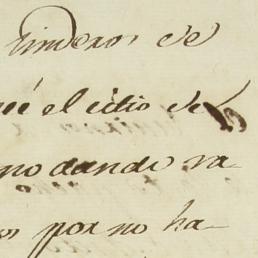 linderos de
el citio de
no dande ra-
por no ha-